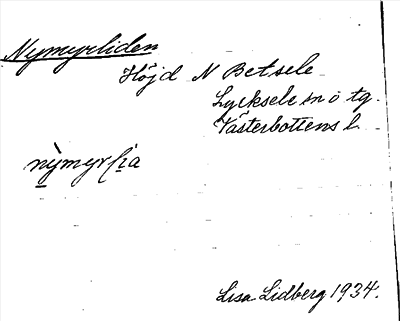 Nymyrliden
Höjd N Betsele
Lycksele sn o tg.
Västerbottens l.
nỳmyrlia
Lisa Lidberg 1934.